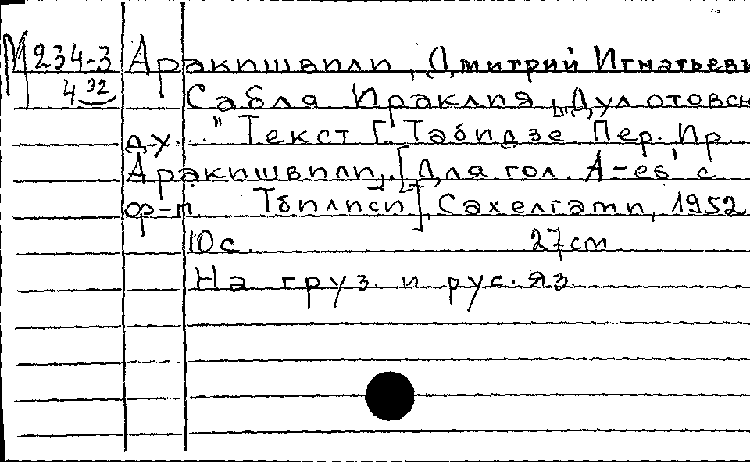 М 234-3 Аракишвили, Дмитрий Игнатьеви
4 32 Сабля Ираклия „Дулотовск
ду..." Текст Г. Табидзе Пер. Ир
Аракишвили. [Для гол. A-es' с
ор-п. Тбилиси], Сахелгами, 1952
10 с. 27 см
На груз. и рус. яз